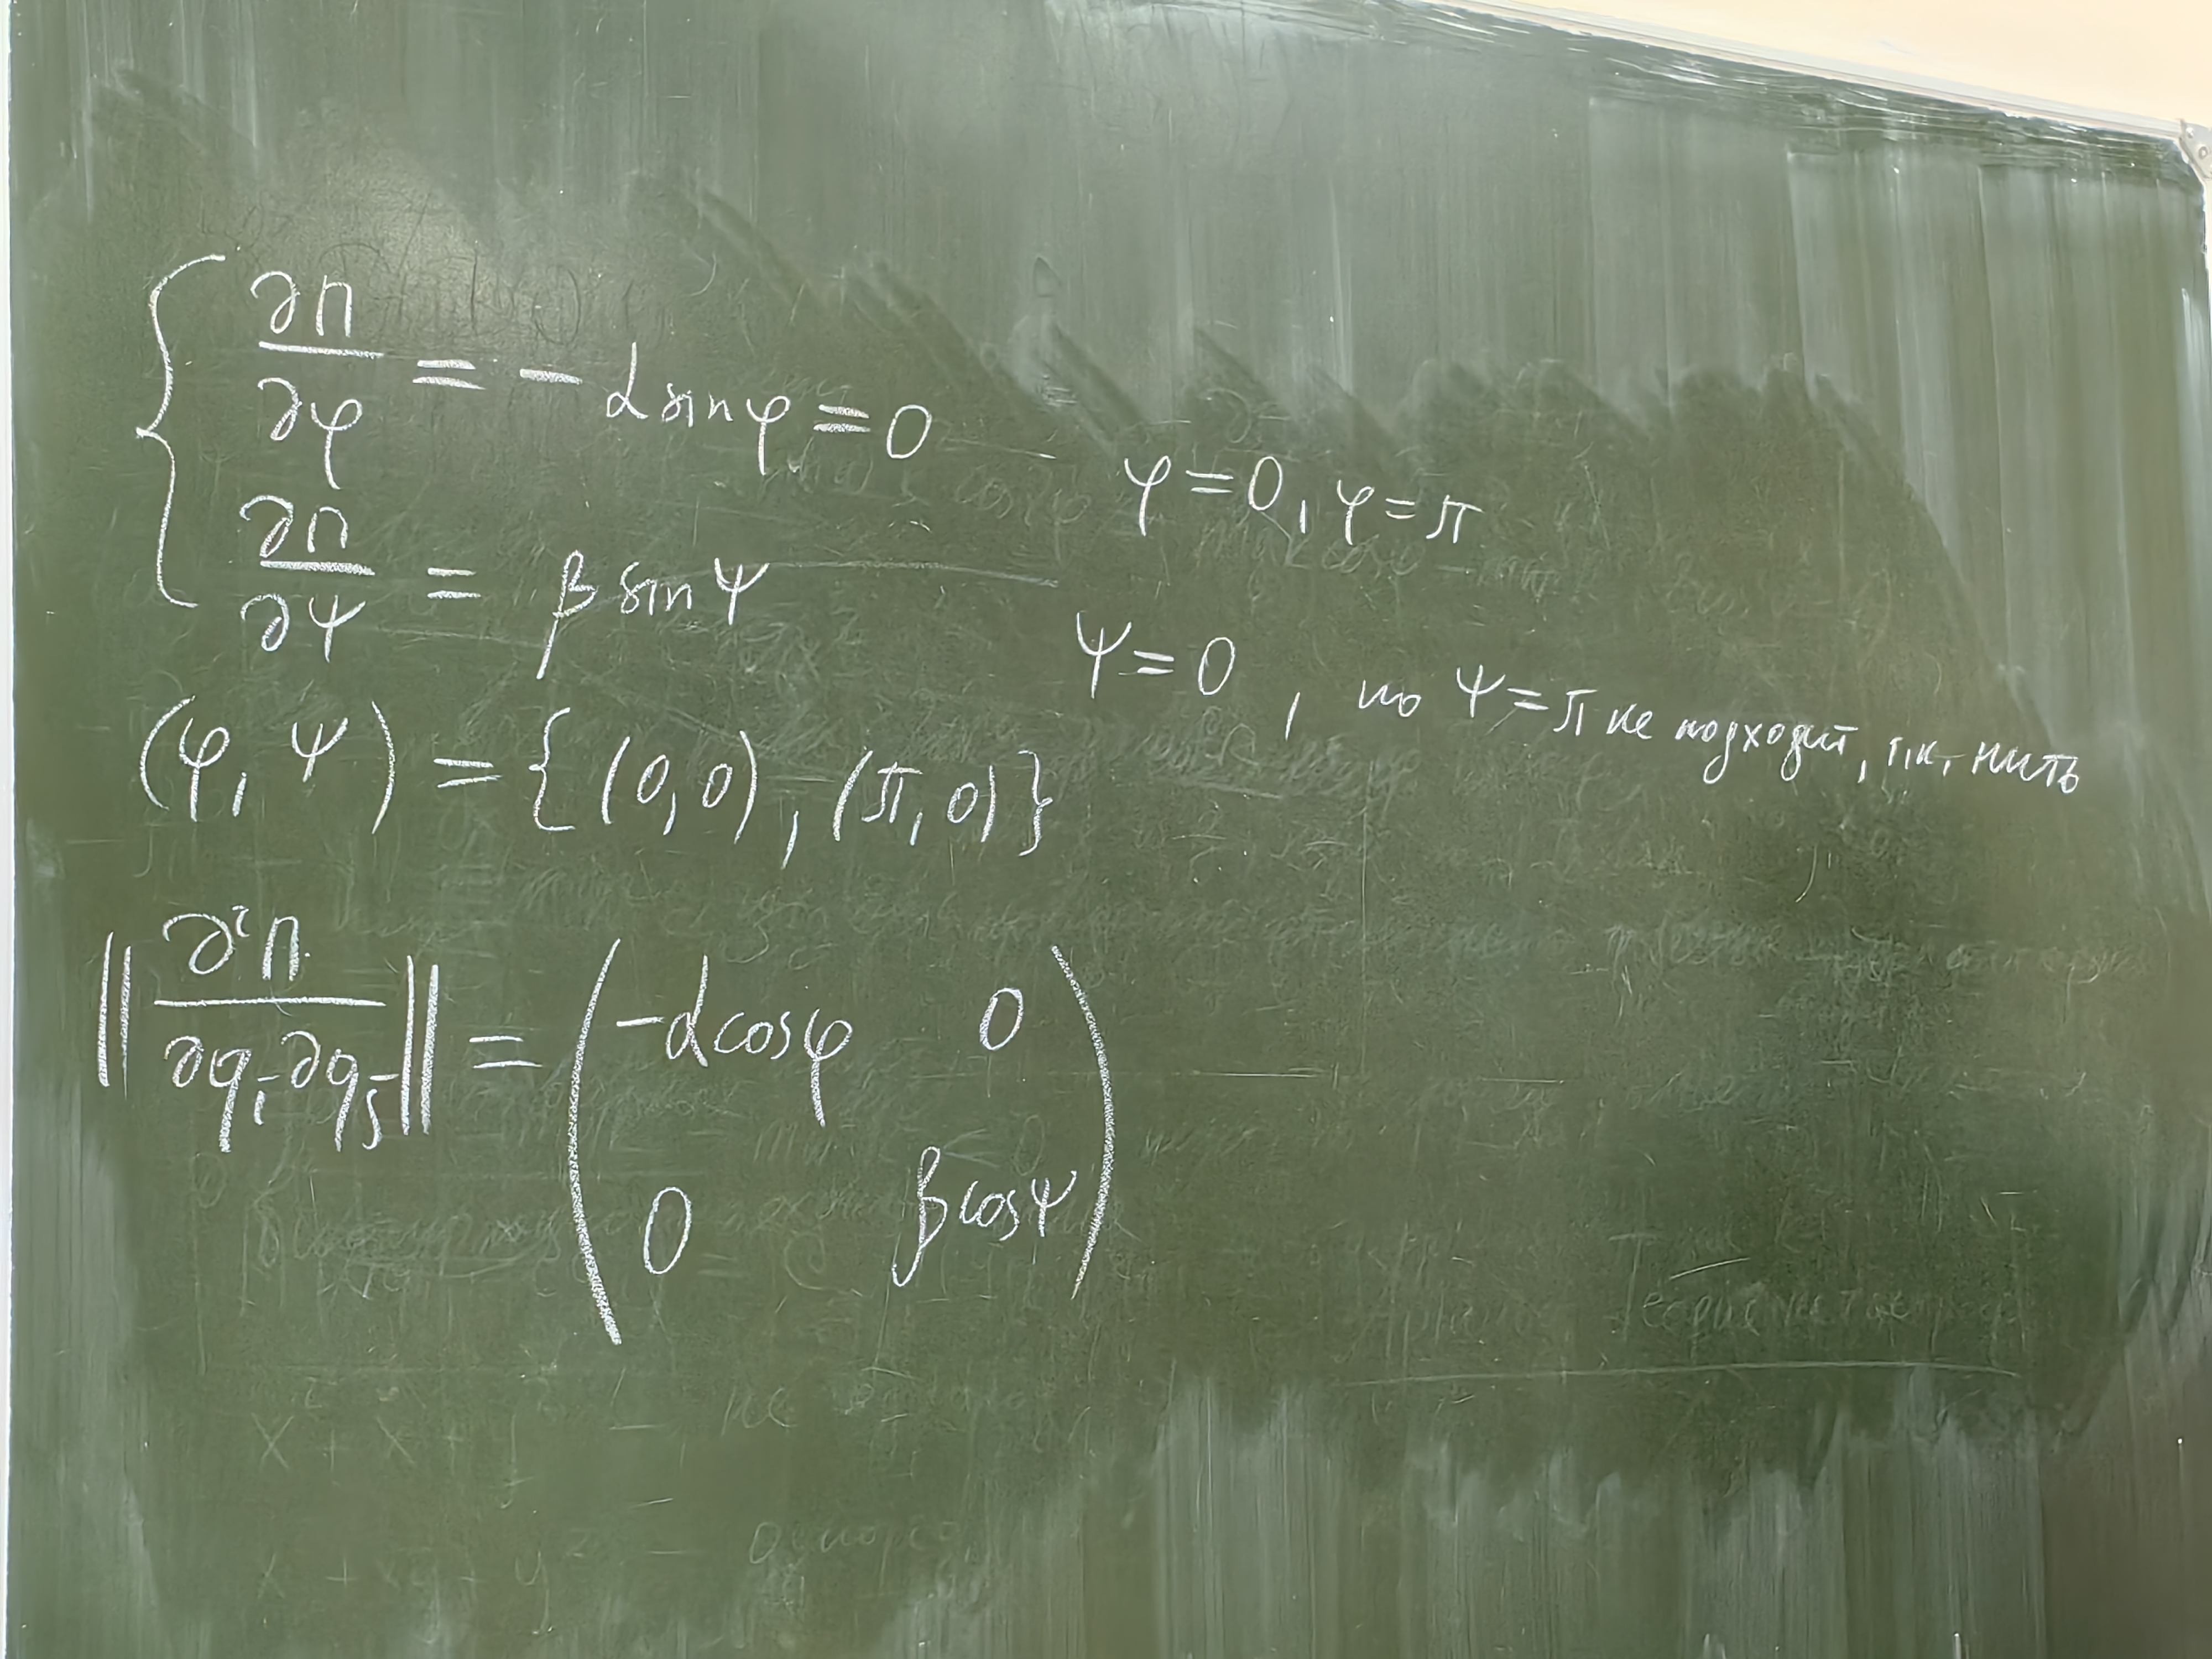 ∂П/∂φ = - α sin φ = 0
φ = 0, φ = π
∂П/∂ψ = β sin ψ
ψ = 0, но ψ = π не подходит, т.к. нить
(φ, ψ) = { (0, 0), (π, 0) }
‖ ∂²П/∂qᵢ∂qⱼ ‖ = ( -α cos φ 0
0 β cos ψ )